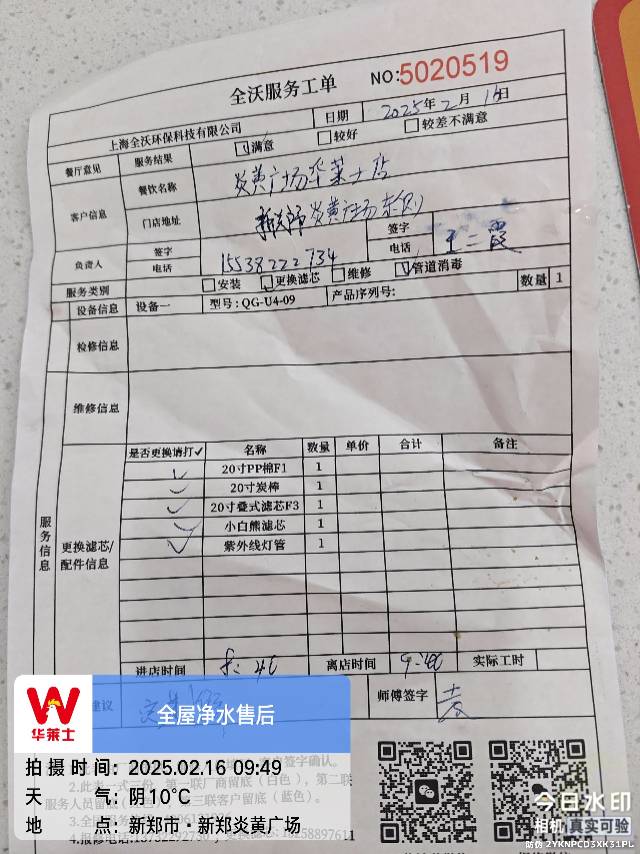 全沃服务工单 NO:5020519
上海全沃环保科技有限公司 日期 2025年2月16日
餐厅意见 服务结果 满意 较好 较差不满意
客户信息 餐饮名称 炎黄广场华莱士店
门店地址 炎黄广场东侧
负责人 签字 签字 王二霞
电话 15538222734 电话
服务类别 安装 更换滤芯 维修 管道消毒
设备信息 设备一 型号:QG-U4-09 产品序列号: 数量 1
检修信息
维修信息
服务信息
更换滤芯/配件信息
是否更换请打✓ 名称 数量 单价 合计 备注
✓ 20寸PP棉F1 1
✓ 20寸炭棒 1
✓ 20寸叠式滤芯F3 1
✓ 小白熊滤芯 1
✓ 紫外线灯管 1
进店时间 8:40 离店时间 9:40 实际工时
建议 师傅签字
签字确认。
2.此表一式三份，第一联厂商留底（白色），第二联
服务人员留底 联客户留底（蓝色）。
4.报修电话
华莱士
全屋净水售后
拍摄时间：2025.02.16 09:49
天气：阴10°C
地点：新郑市·新郑炎黄广场
今日水印
相机 真实可验
防伪 2YKNPCD3XK31PL